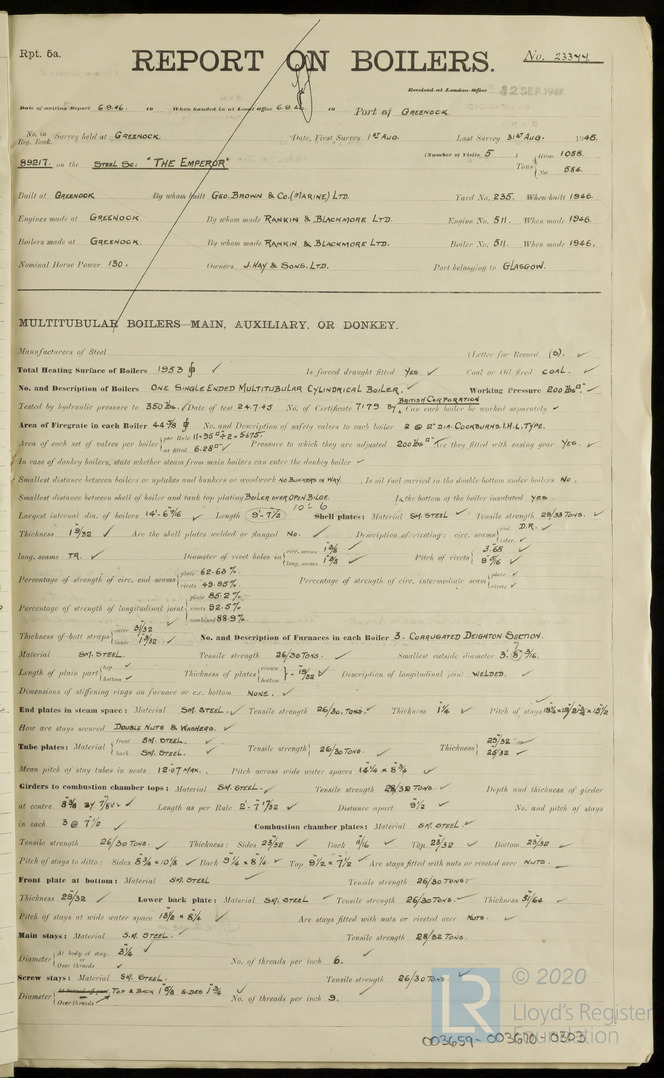 Rpt. 5a.
REPORT ON BOILERS.
No. 23377
Received at London Office 12 SEP 1946
Date of writing Report 6.9.46. 19 When handed in at Local Office 6.9.46. 19 Port of GREENOCK.
No. in Reg. Book. Survey held at GREENOCK. Date, First Survey 1ST AUG. Last Survey 31ST AUG. 1946.
(Number of Visits 5 )
89217. on the STEEL SC: "THE EMPEROR" Tons { Gross 1058. Net 584.
Built at GREENOCK By whom built GEO. BROWN & CO. (MARINE) LTD. Yard No. 235. When built 1946.
Engines made at GREENOCK. By whom made RANKIN & BLACKMORE LTD. Engine No. 511. When made 1946.
Boilers made at GREENOCK. By whom made RANKIN & BLACKMORE LTD. Boiler No. 511. When made 1946.
Nominal Horse Power 130. Owners J. HAY & SONS. LTD. Port belonging to GLASGOW.
MULTITUBULAR BOILERS MAIN, AUXILIARY, OR DONKEY.
Manufacturers of Steel (Letter for Record (S). ✓
Total Heating Surface of Boilers 1953 ✓ Is forced draught fitted YES ✓ Coal or Oil fired COAL. ✓
No. and Description of Boilers ONE SINGLE ENDED MULTITUBULAR CYLINDRICAL BOILER. ✓ Working Pressure 200 lbs □". ✓
BRITISH CORPORATION
Tested by hydraulic pressure to 350 lbs. ✓ Date of test 24.7.45 No. of Certificate 7179 BY Can each boiler be worked separately ✓
Area of Firegrate in each Boiler ✓ No. and Description of safety valves to each boiler 2 @ 2" DIA. COCKBURNS. I.H.L. TYPE.
Area of each set of valves per boiler { per Rule as fitted 6.28□" ✓ Pressure to which they are adjusted 200 lbs □" Are they fitted with easing gear YES. ✓
In case of donkey boilers, state whether steam from main boilers can enter the donkey boiler ✓
Smallest distance between boilers or uptakes and bunkers or woodwork NO BUNKERS IN WAY. Is oil fuel carried in the double bottom under boilers NO.
Smallest distance between shell of boiler and tank top plating BOILER OVER OPEN BILGE. Is the bottom of the boiler insulated YES.
10'-6
Largest internal dia. of boilers 14'-6 7/16 ✓ Length 9'-7/2 Shell plates: Material SM. STEEL ✓ Tensile strength 29/33 TONS. ✓
Thickness 1 9/32 ✓ Are the shell plates welded or flanged NO. ✓ Description of riveting: circ. seams { end. D.R. ✓ inter. ✓
long. seams TR. ✓ Diameter of rivet holes in { circ. seams 1 3/8 long. seams 1 3/8 ✓ Pitch of rivets { 3.68 ✓
Percentage of strength of circ. end seams { plate 62.63 % rivets 49.95% Percentage of strength of circ. intermediate seam { plate ✓ rivets ✓
Percentage of strength of longitudinal joint { plate 85.27 % rivets 92.5% combined 88.9%
Thickness of butt straps { outer 31/32 inner 1 3/32 ✓ No. and Description of Furnaces in each Boiler 3 - CORRUGATED DEIGHTON SECTION.
Material SM. STEEL. Tensile strength 26/30 TONS. ✓ Smallest outside diameter
Length of plain part { top ✓ bottom ✓ Thickness of plates { crown bottom } 19/32 ✓ Description of longitudinal joint WELDED. ✓
Dimensions of stiffening rings on furnace or c.c. bottom NONE. ✓
End plates in steam space: Material SM. STEEL. ✓ Tensile strength 26/30. TONS. ✓ Thickness 1 1/4 ✓ Pitch of stays
How are stays secured DOUBLE NUTS & WASHERS. ✓
Tube plates: Material { front SM. STEEL. ✓ back SM. STEEL. ✓ Tensile strength { 26/30 TONS. ✓ Thickness { 29/32 ✓ 25/32 ✓
Mean pitch of stay tubes in nests 12.07 MAX. ✓ Pitch across wide water spaces 14 1/4 × 8 3/4 ✓
Girders to combustion chamber tops: Material SM. STEEL. ✓ Tensile strength 28/32 TONS. ✓ Depth and thickness of girder
at centre 8 3/4 BY 7/8 ✓ Length as per Rule 2'-7 17/32 ✓ Distance apart 9 1/2 ✓ No. and pitch of stays
in each 3 @ 7 1/2 ✓ Combustion chamber plates: Material SM. STEEL ✓
Tensile strength 26/30 TONS. ✓ Thickness: Sides 23/32 ✓ Back 11/16 ✓ Top 23/32 ✓ Bottom 23/32 ✓
Pitch of stays to ditto: Sides 8 3/4 × 10 1/8 ✓ Back 9 1/4 × 8 1/4 ✓ Top 9 1/2 × 7 1/2 ✓ Are stays fitted with nuts or riveted over NUTS. ✓
Front plate at bottom: Material SM. STEEL ✓ Tensile strength 26/30 TONS. ✓
Thickness 29/32 ✓ Lower back plate: Material SM. STEEL ✓ Tensile strength 26/30 TONS. ✓ Thickness 51/64 ✓
Pitch of stays at wide water space 13 1/2 × 8 1/4 ✓ Are stays fitted with nuts or riveted over NUTS. ✓
Main stays: Material S.M. STEEL. ✓ Tensile strength 28/32 TONS.
Diameter { At body of stay, or Over threads 3 1/4 ✓ No. of threads per inch 6. ✓
Screw stays: Material SM. STEEL. ✓ Tensile strength 26/30 TONS. ✓
Diameter { Over threads TOP & BACK 1 5/8 SIDES 1 3/4 ✓ No. of threads per inch 9. ✓
LR
© 2020
Lloyd's Register
Foundation
003659-003670-0303